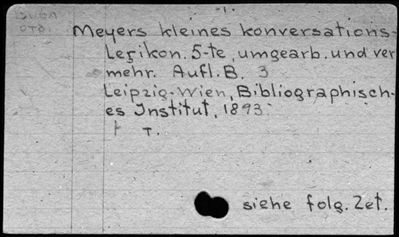 -1-
Meyers kleines konversations-
Lexikon. 5-te, umgearb. und ver
mehr. Aufl. B. 3
Leipzig-Wien, Bibliographisch-
es Institut, 1893.
T.
siehe folg. Zet.